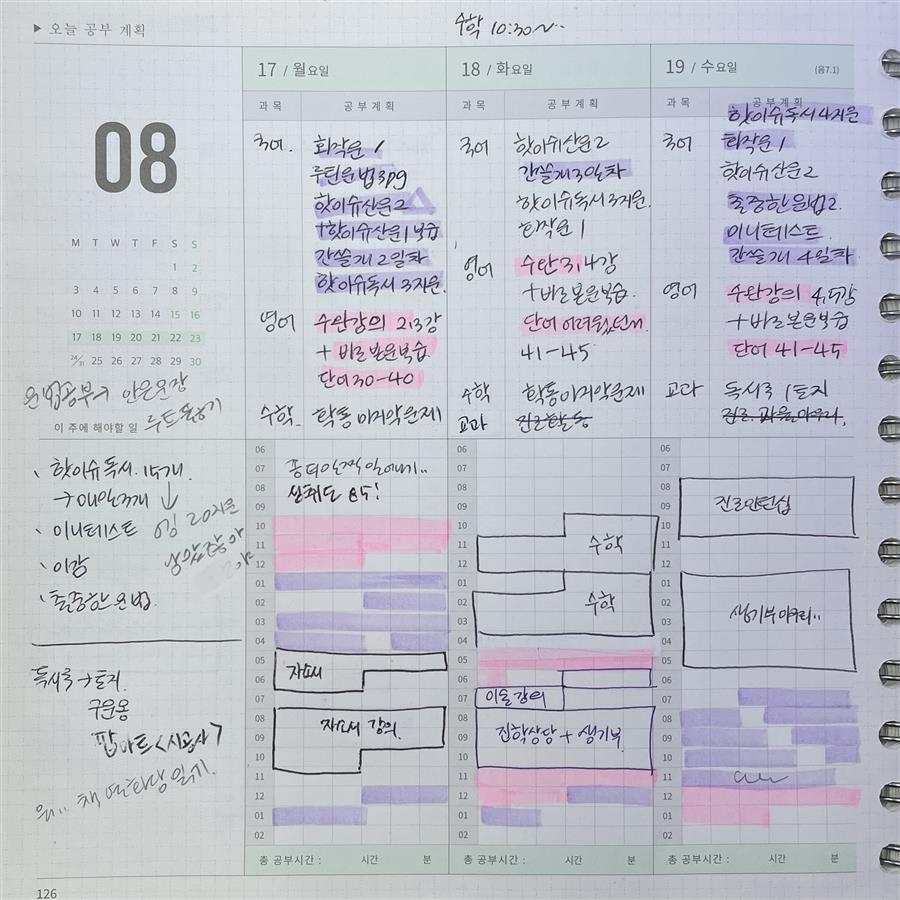 ▶ 오늘 공부 계획
수학 10:30~..
08
M T W T F S S
1 2
3 4 5 6 7 8 9
10 11 12 13 14 15 16
17 18 19 20 21 22 23
24/31 25 26 27 28 29 30
문법공부→ 안은문장
이 주에 해야할 일
루트
17 / 월요일
과목 공부계획
국어. 화작문 1
루틴문법 3pg
핫이슈산문2
+핫이슈산문1 복습
간쓸개 2일차
핫이슈독서 3지문.
영어 수완강의 2,3강
+ 바로본문복습
단어 30-40
수학. 학통 미적악문제
18 / 화요일
과목 공부계획
국어 핫이슈산문2
간쓸개 3일차
핫이슈독서 3지문.
화작문 1
영어 수완 3,4강
+바로본문복습.
단어 어려웠던거.
41-45
수학 학통미적악문제
교과 진로활동
19 / 수요일 (음7.1)
과목 공부계획
핫이슈독서 4지문
국어 화작문 1
핫이슈산문2
출중한문법2.
미니테스트.
간쓸개 4일차
영어 수완강의 4,5강
+바로본문복습
단어 41-45
교과 독서록 1토지
진로
핫이슈독서. 15개.
→매일3개
미니테스트
20지문
이감
출중한문법.
독서록→토지.
구운몽
팝아트<시공사>
책
06
07
08
09
10
11
12
01
02
03
04
05
06
07
08
09
10
11
12
01
02
좀더일찍 일어나기..
성취도 85!
자소서
자소서 강의.
총 공부시간 : 시간 분
06
07
08
09
10
11
12
01
02
03
04
05
06
07
08
09
10
11
12
01
02
수학
수학
이솔강의
진학상담 + 생기부.
총 공부시간 : 시간 분
06
07
08
09
10
11
12
01
02
03
04
05
06
07
08
09
10
11
12
01
02
진로인턴십
생기부마무리..
총 공부시간 : 시간 분
126